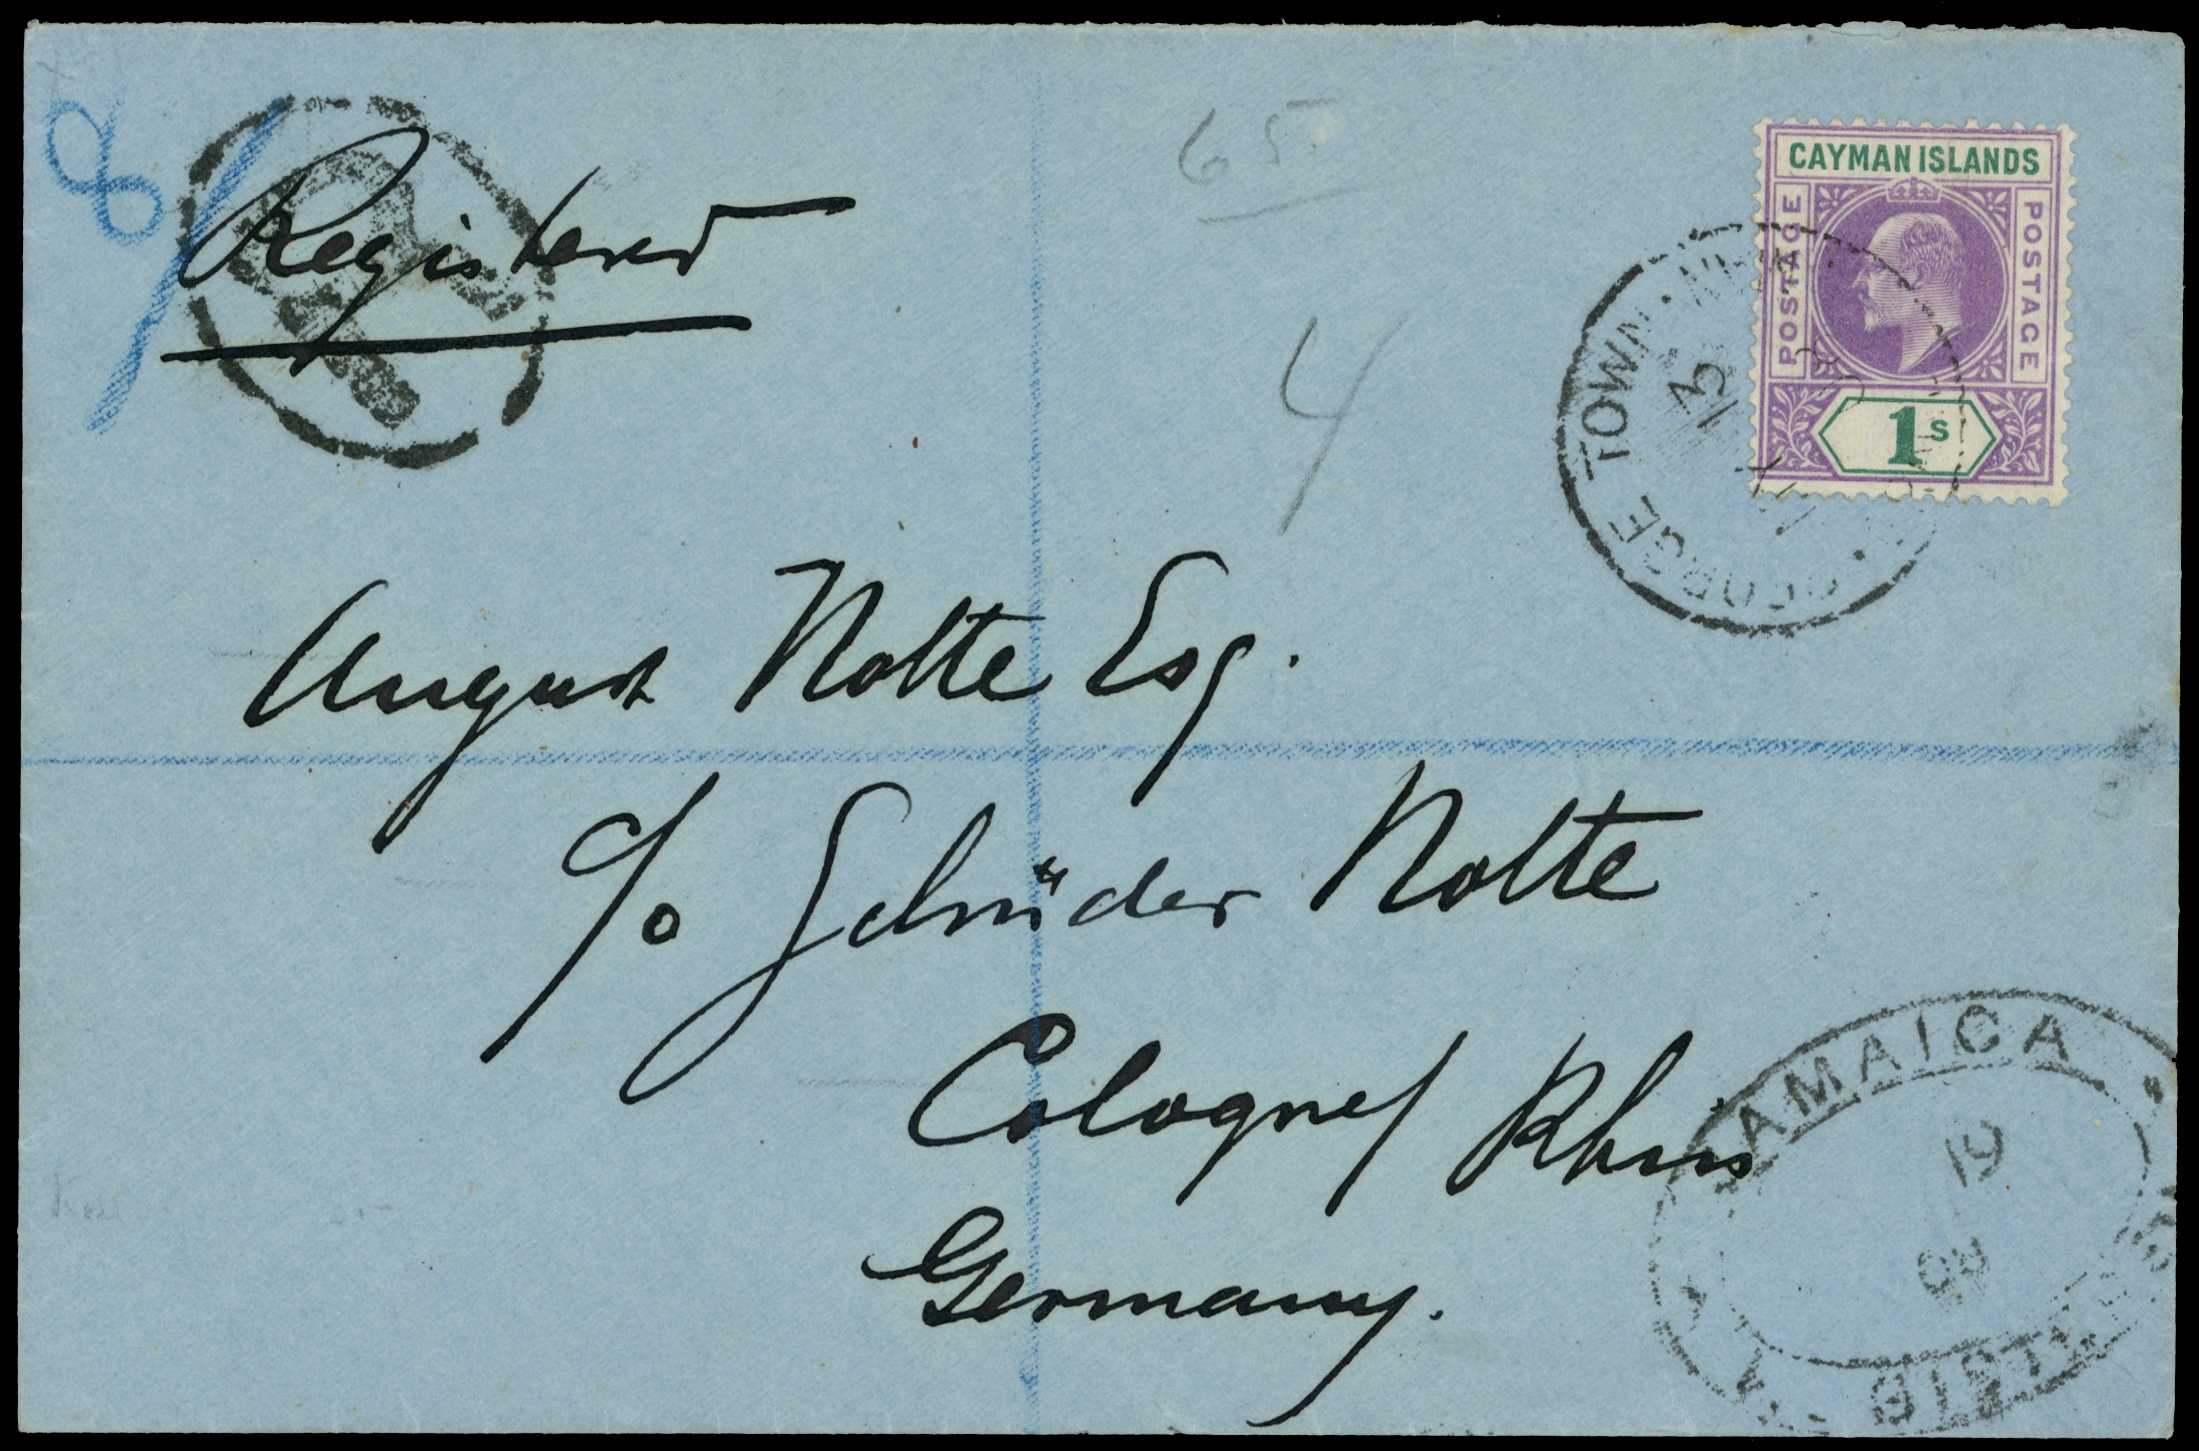 8/
Registered
65
4
CAYMAN ISLANDS
POSTAGE
POSTAGE
1s
GEORGE TOWN
13
August Nolte Esq.
c/o Schrüder Nolte
Cologne/Rhein
Germany.
JAMAICA
19